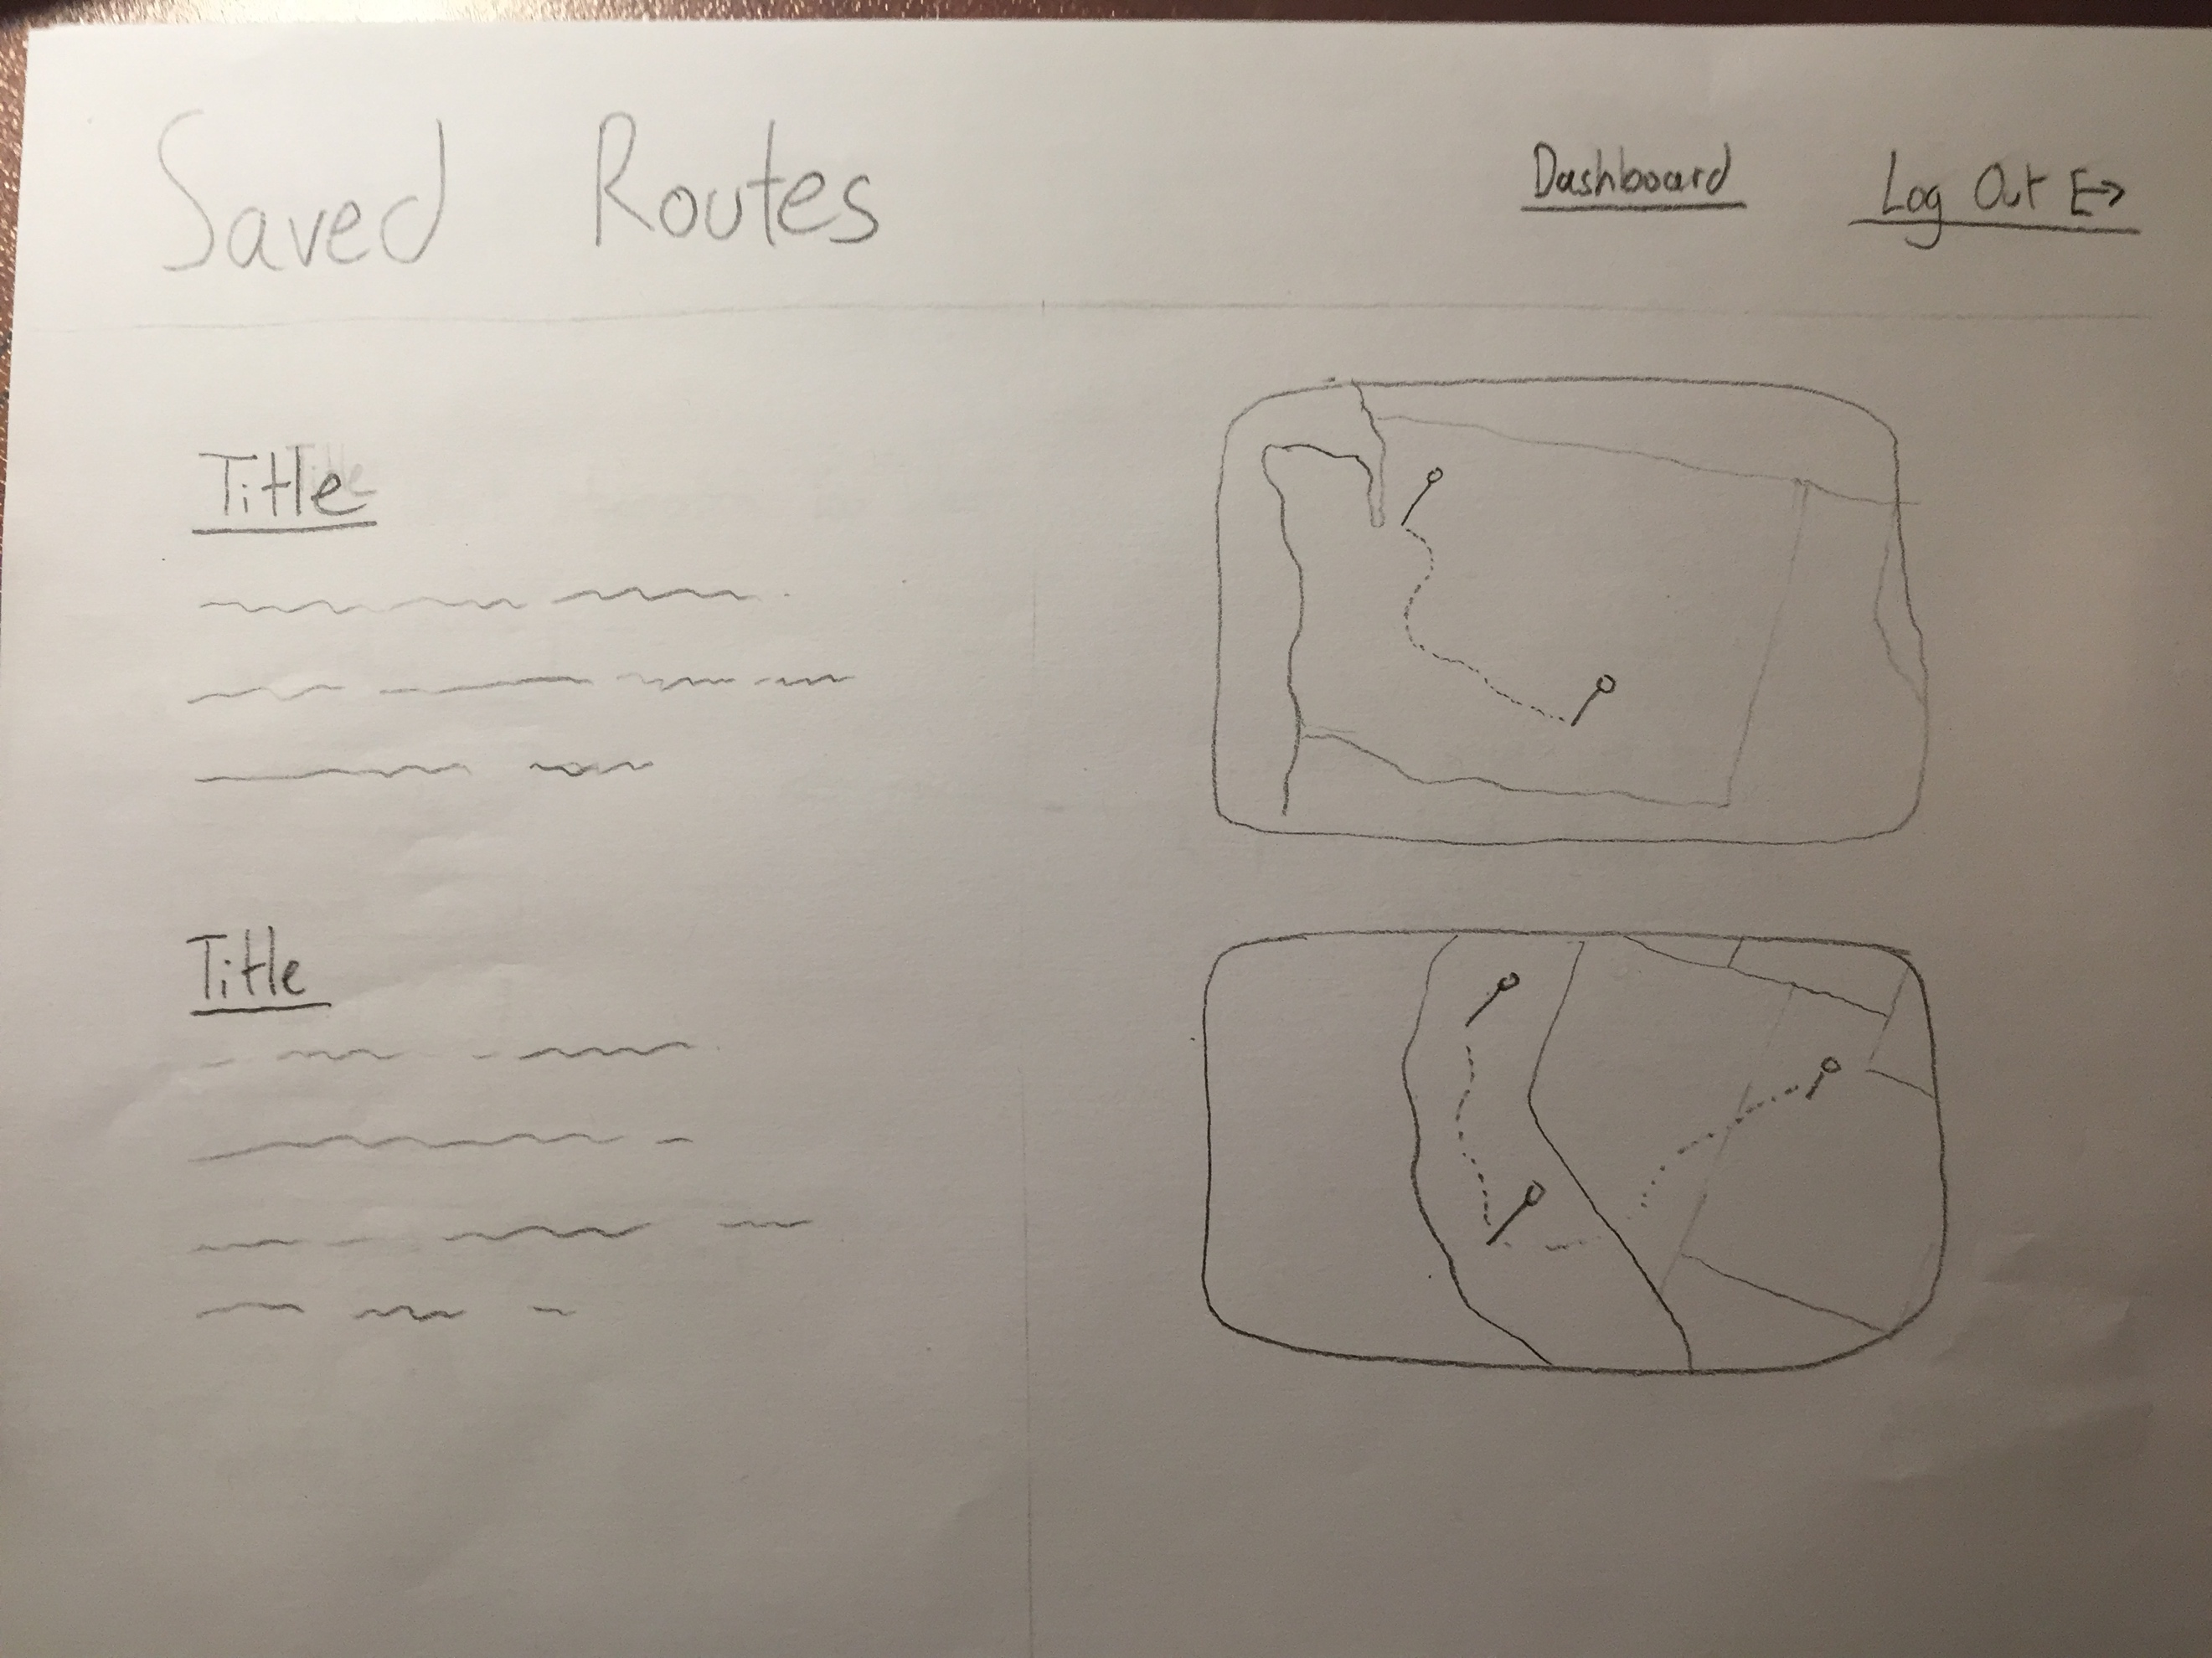 Saved Routes
Dashboard
Log Out
Title
Title